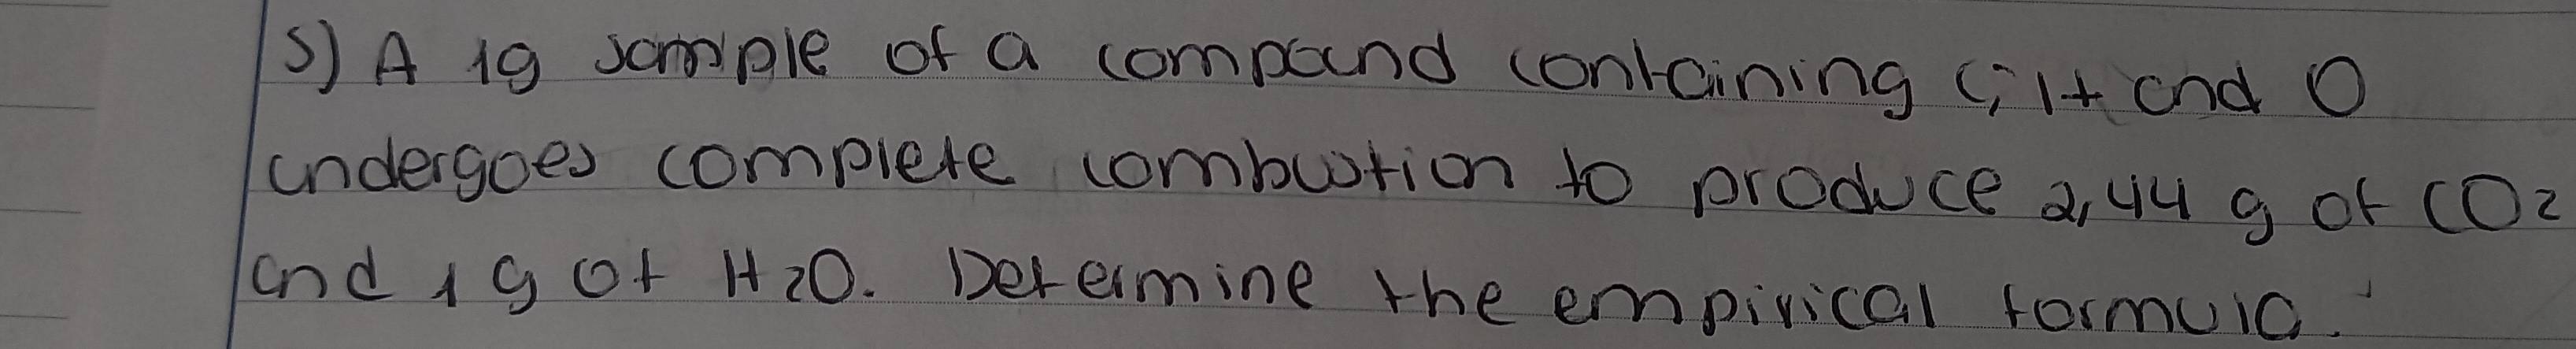 5) A 1g sample of a compound containing C, H and O
undergoes complete combustion to produce 2,44 g of CO2
and 1 g of H2O. Determine the empirical formula.